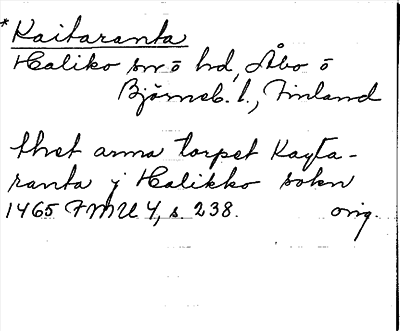 *Kaitaranta
Haliko sn o hd, Åbo o
Björneb. l., Finland
thet arma torpet Kayta-
ranta j Halikko sokn
1465 FMU 4, s. 238. orig.